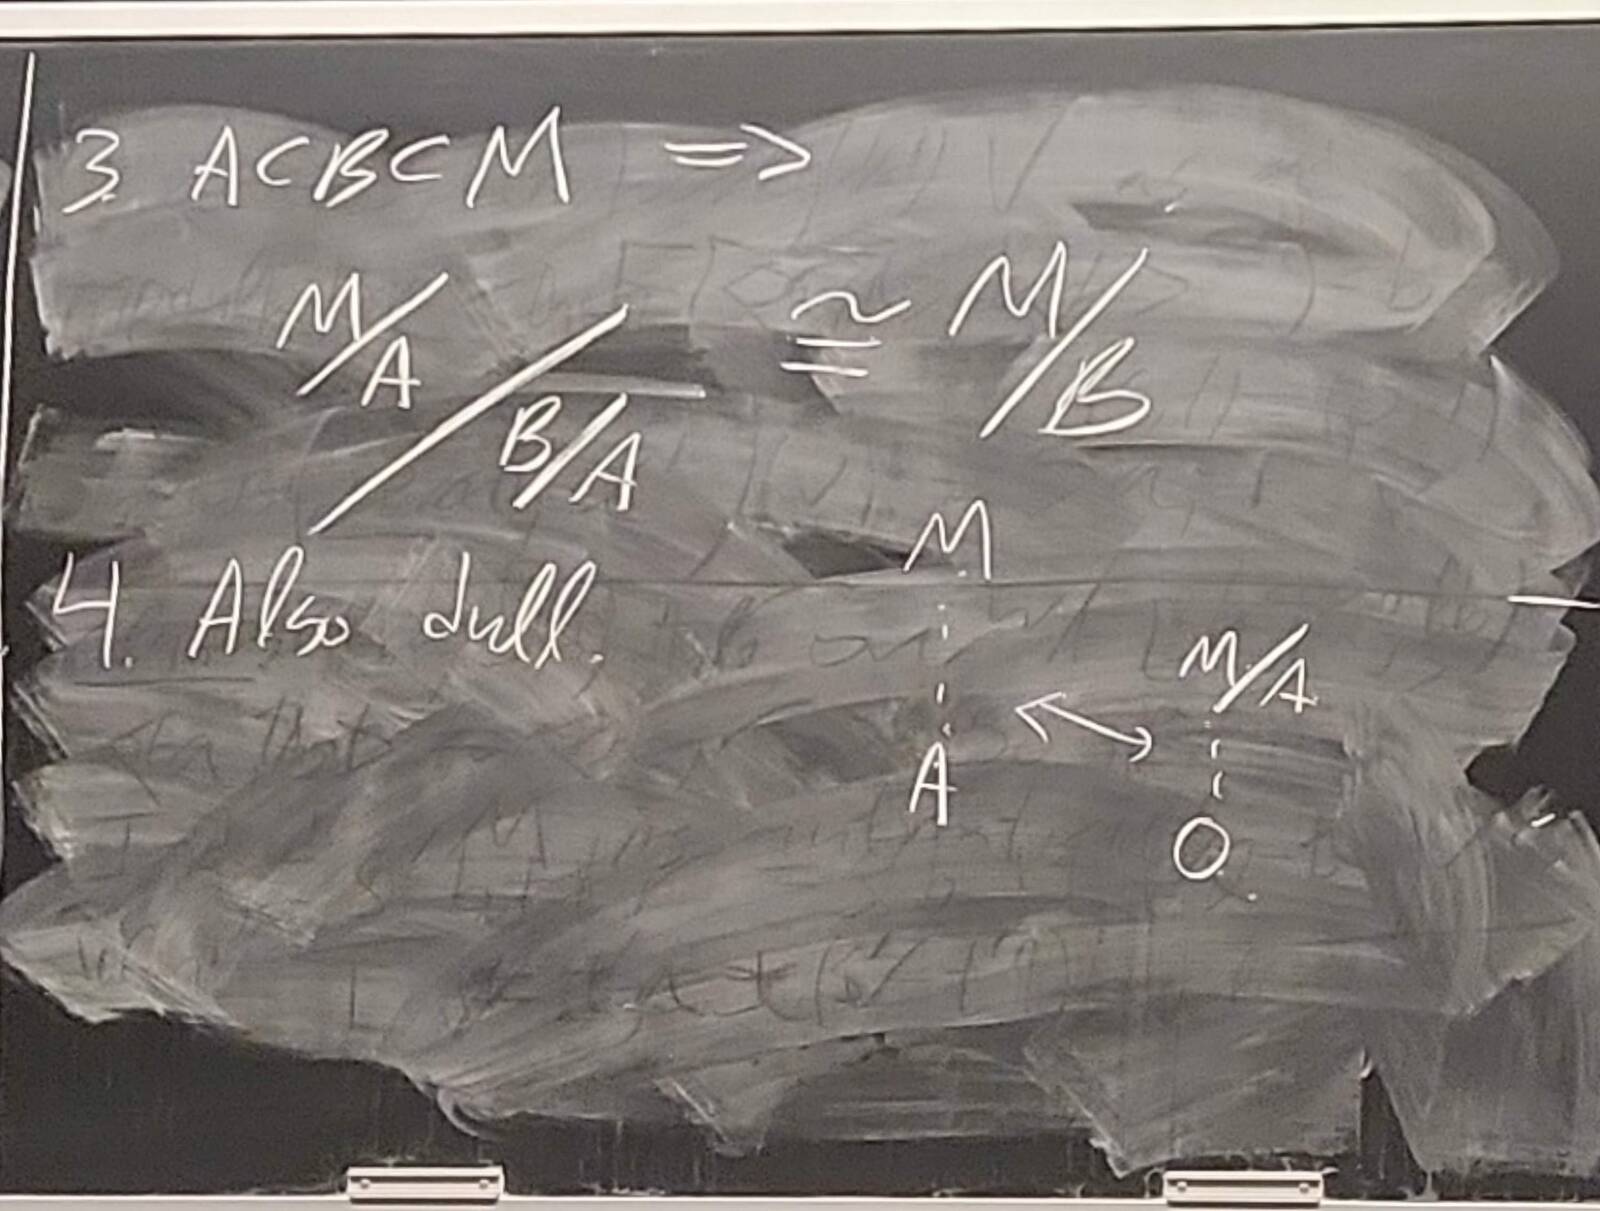 3. A⊂B⊂M ⇒
M/A / B/A ≅ M/B
4. Also dull.
M
A
↔
M/A
O